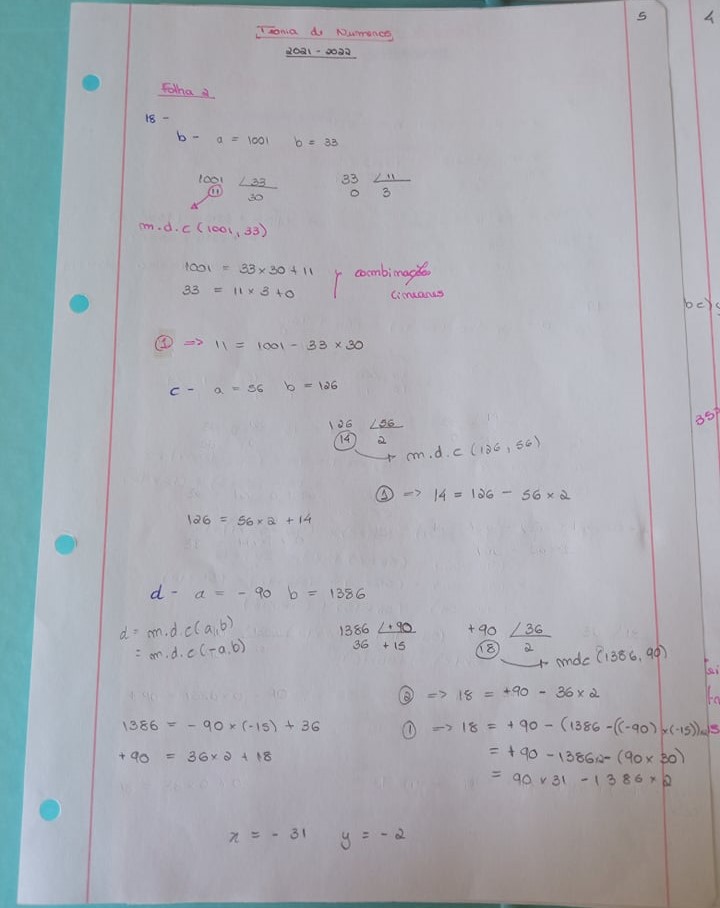 5
Teoria de Numeros
2021-2022
Folha 2
18 -
b - a = 1001 b = 33
1001 ∠33
11 30
33 ∠11
0 3
m.d.c (1001, 33)
1001 = 33 × 30 + 11
33 = 11 × 3 + 0
combinações
lineares
① => 11 = 1001 - 33 × 30
c - a = 56 b = 126
126 ∠56
14 2
m.d.c (126, 56)
① => 14 = 126 - 56 × 2
126 = 56 × 2 + 14
d - a = - 90 b = 1386
d = m.d.c(a,b)
= m.d.c(-a,b)
1386 ∠+90
36 +15
+90 ∠36
18 2
mdc (1386, 90)
② => 18 = +90 - 36 × 2
1386 = - 90 × (-15) + 36
① => 18 = +90 - (1386 - ((-90) × (-15))
+90 = 36 × 2 + 18
= +90 - 1386×2 - (90 × 30)
= 90 × 31 - 1386 × 2
x = - 31 y = - 2
4
bc)
35